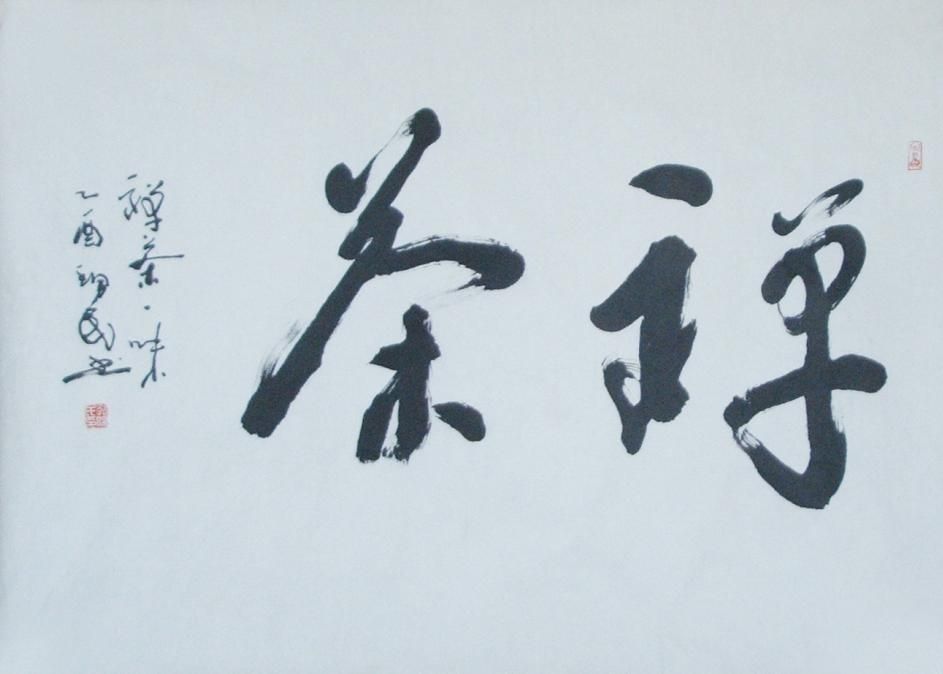 禅茶
禅茶一味
乙酉 民书